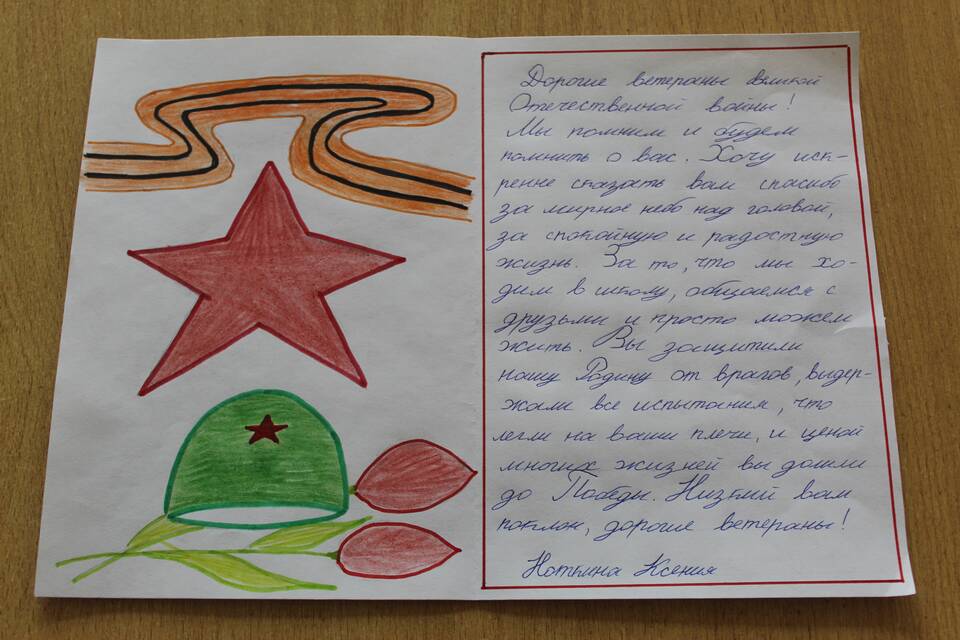 Дорогие ветераны великой
Отечественной войны!
Мы помним и будем
помнить о вас. Хочу иск-
ренне сказать вам спасибо
за мирное небо над головой,
за спокойную и радостную
жизнь. За то, что мы хо-
дим в школу, общаемся с
друзьями и просто можем
жить. Вы защитили
нашу Родину от врагов, выдер-
жали все испытания, что
легли на ваши плечи, и ценой
многих жизней вы дошли
до Победы. Низкий вам
поклон, дорогие ветераны!
Ноткина Ксения